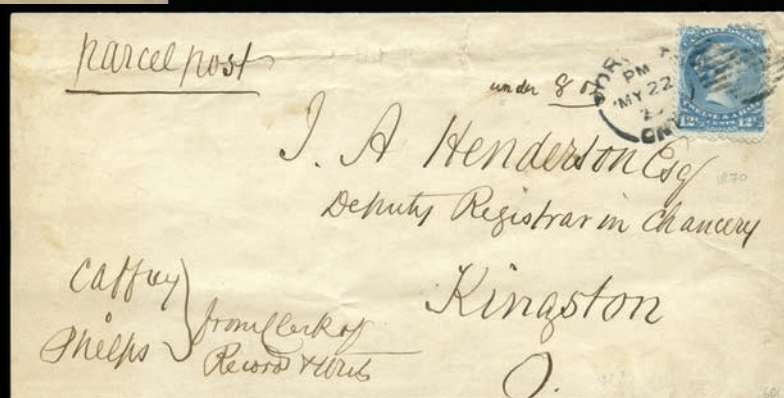 parcel post
under 8 oz
PM
MY 22
ONT
12½ CENTS 12½
J. A Henderson Esq
1870
Deputy Registrar in Chancery
Kingston
O.
Caffrey
Phelps
from Clerk of
Records & Writs